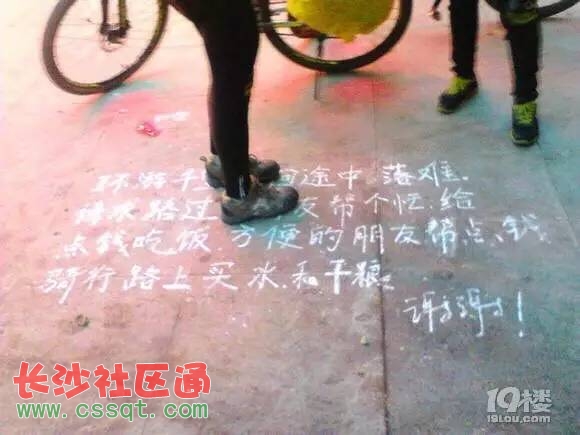 环游 途中 落难.
求路过 友帮个忙.给
点钱吃饭.方便的朋友帮点.钱
骑行路上买水.和干粮.
谢谢!
长沙社区通
www.cssqt.com
19楼
19LOU.COM